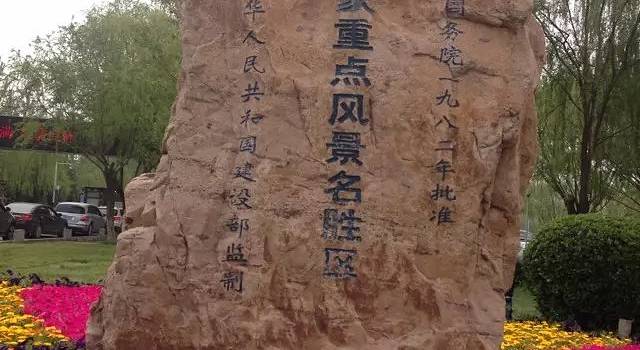 国务院一九八二年批准
家重点风景名胜区
华人民共和国建设部监制